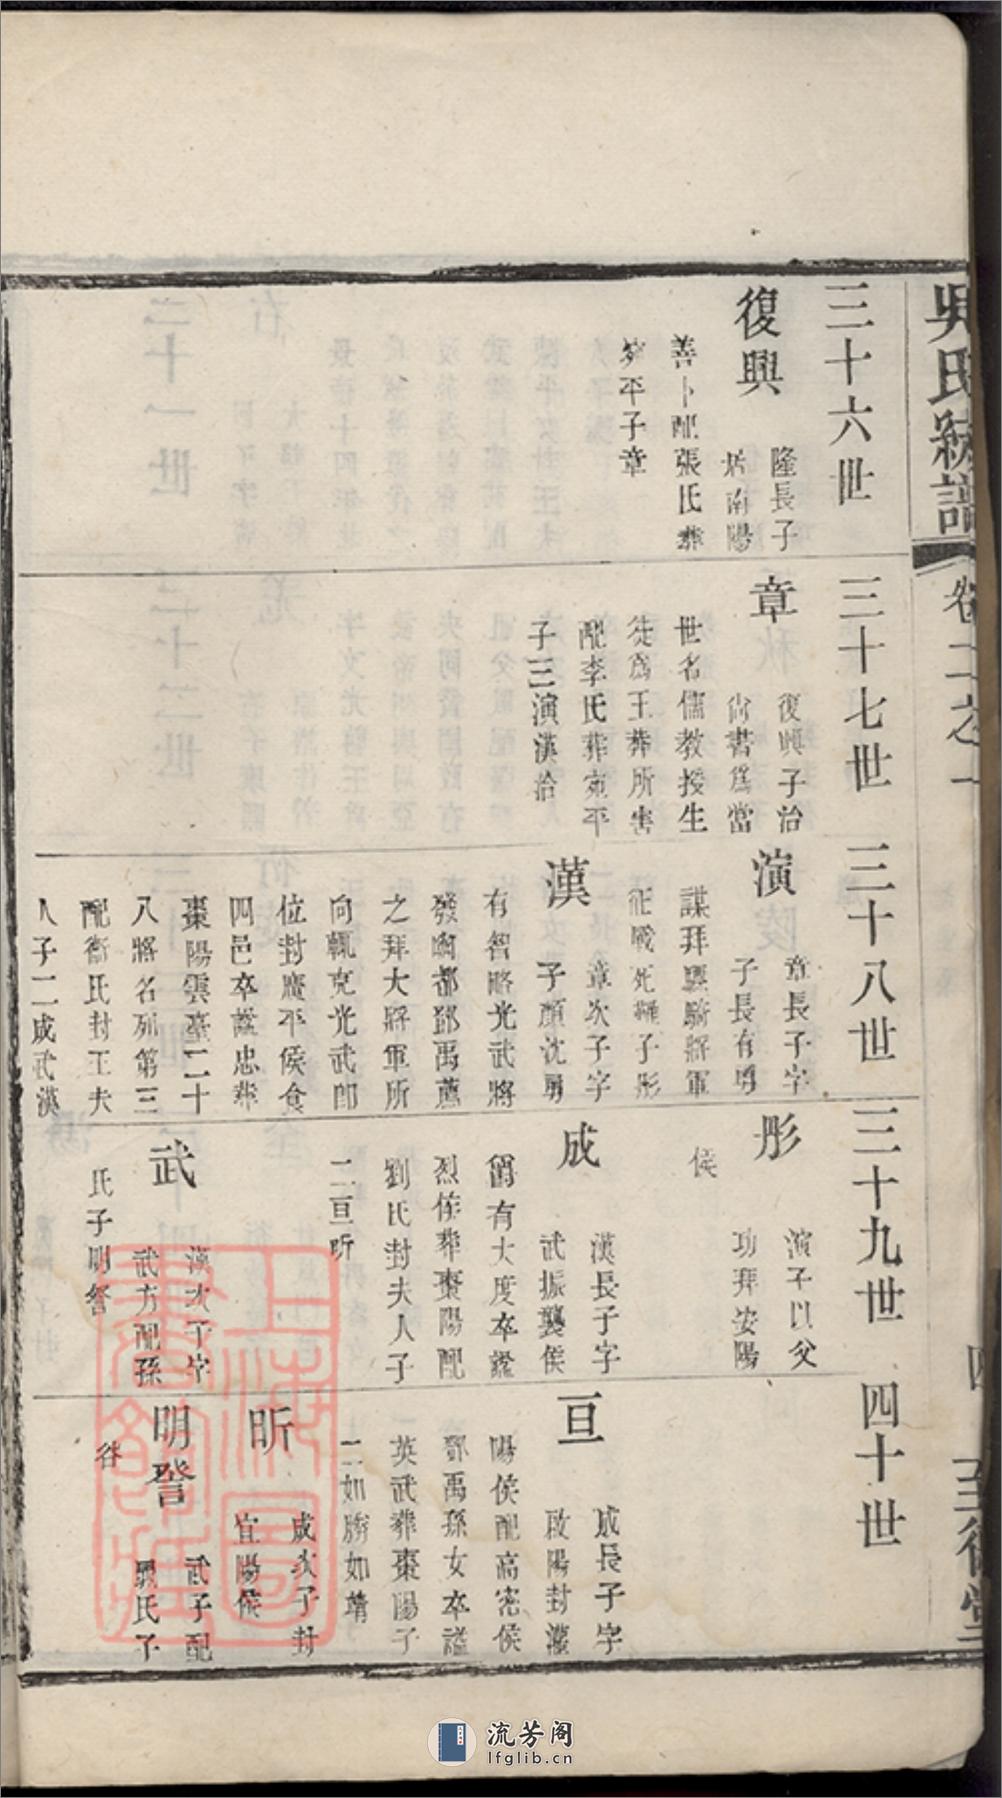 吳氏統譜
卷二之一
四
至德堂
三十六世
復興
隆長子
居南陽
善卜配張氏葬
宛平子章
三十七世
章
復興子治
尚書爲當
世名儒教授生
徒爲王莽所害
配李氏葬宛平
子三演漢洽
三十八世
演
章長子字
子長有勇
謀拜驃騎將軍
征戰死難子彤
漢
章次子字
子顏沈勇
有智略光武將
發幽都鄧禹薦
之拜大將軍所
向輒克光武即
位封廣平侯食
四邑卒諡忠葬
棗陽雲臺二十
八將名列第三
配衞氏封王夫
人子二成武漢
三十九世
彤
演子以父
功拜安陽
侯
成
漢長子字
武振襲侯
爵有大度卒諡
烈侯葬棗陽配
劉氏封夫人子
二亘昕
武
漢次子字
武方配孫
氏子明詧
四十世
亘
成長子字
啟陽封灌
陽侯配高密侯
鄧禹孫女卒諡
英武葬棗陽子
二如勝如靖
昕
成次子封
宜陽侯
明詧
武子配
聶氏子
上海圖書館藏
流芳阁
lfglib.cn